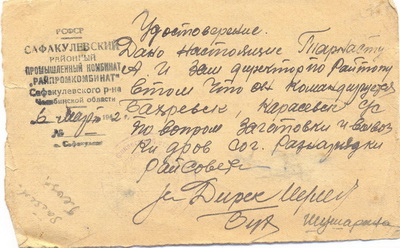 РСФСР
САФАКУЛЕВСКИЙ
РАЙОННЫЙ
ПРОМЫШЛЕННЫЙ КОМБИНАТ
„РАЙПРОМКОМБИНАТ"
Сафакулевского р-на
Челябинской области
6 мар 194 2
№
с. Сафакулево
Удостоверение.
Дано настоящие
А И Зам директор по Райтопу
в том что он командируется
Карасевый с/с
по вопросам заготовки и вывозки
ки дров сог. Разнарядки
Райсовета
Дирек
Бух